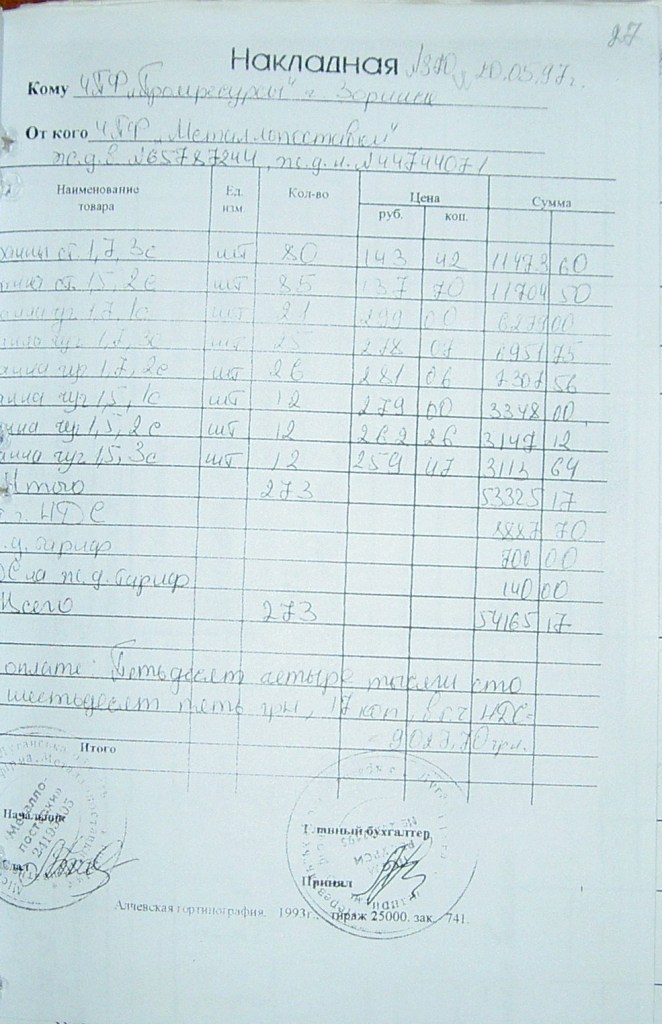 27
Накладная №370 20.05.97г.
Кому ЧПФ "Промресурсы" г. Зоринск
От кого ЧПФ "Металлопоставки"
ж.д.в. №65787244, ж.д.н. №44744071
Наименование товара Ед. изм. Кол-во Цена Сумма
руб. коп.
ст. 1,7, 3с шт 80 143 42 11473 60
ст. 1,5, 2с шт 85 137 70 11704 50
чуг 1,7, 1с шт 21 299 00 6279 00
чуг 1,7, 3с шт 25 278 07 6951 75
чуг 1,7, 2с шт 26 281 06 7307 56
чуг 1,5, 1с шт 12 279 00 3348 00
чуг 1,5, 2с шт 12 262 26 3147 12
чуг 1,5, 3с шт 12 259 47 3113 64
Итого 273 53325 17
НДС 8887 70
д. тариф 700 00
на ж.д. тариф 140 00
Всего 273 54165 17
оплате: Пятьдесят четыре тысячи сто
шестьдесят пять грн, 17 коп, в т.ч НДС-
- 9027,70 грн.
Итого
Металло-
поставки
Начальник
Главный бухгалтер
Сдал
Принял
Алчевская гортипография. 1993г. тираж 25000. зак. 741.